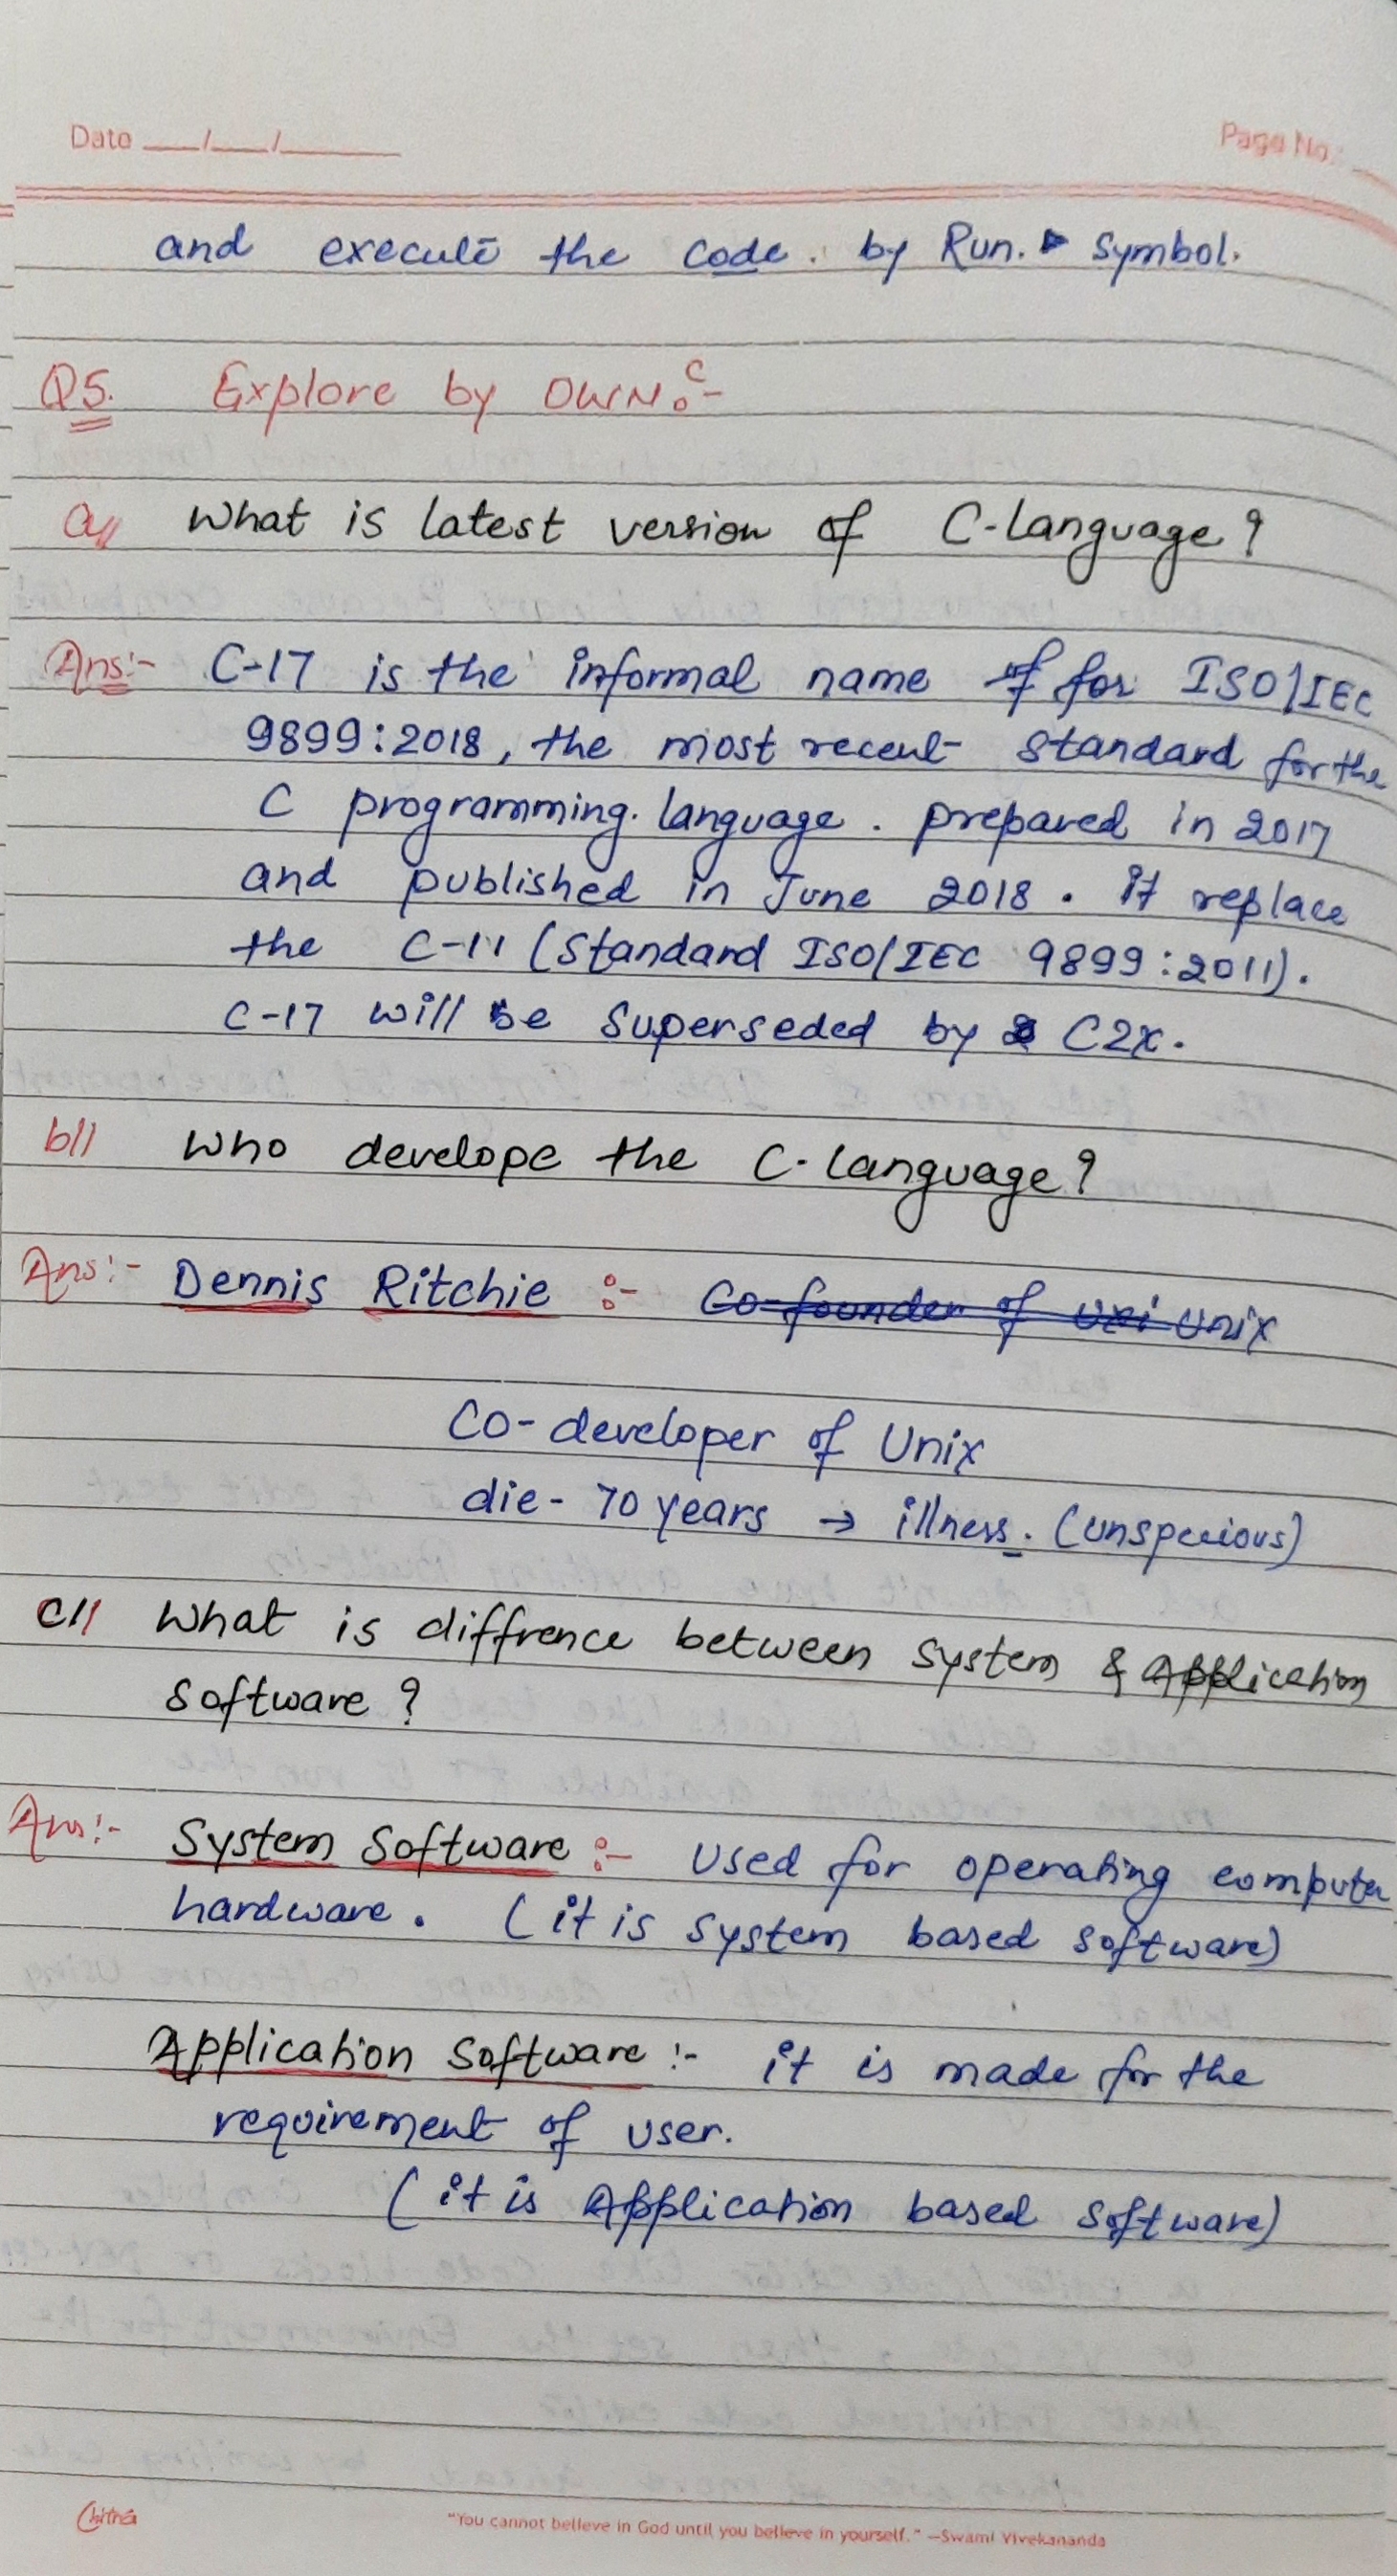 Date ___/___/______
Page No.:
and execute the code. by Run. ▶ Symbol.
Q5. Explore by OWN :-
a|| What is latest version of C-language ?
Ans:- C-17 is the informal name of for ISO/IEC
9899:2018, the most recent standard for the
C programming. language. prepared in 2017
and published in June 2018. it replace
the C-11 (Standard ISO/IEC 9899:2011).
C-17 will be superseded by C2x.
b|| Who develope the C-language ?
Ans:- Dennis Ritchie :- Co-founder of Uxi Unix
Co-developer of Unix
die - 70 years → illness. (unspecious)
C|| What is diffrence between system & Application
software ?
Ans:- System Software :- used for operating computer
hardware. (it is system based software)
Application Software :- it is made for the
requirement of user.
(it is Application based software)
Chitra
"You cannot believe in God until you believe in yourself." —Swami Vivekananda